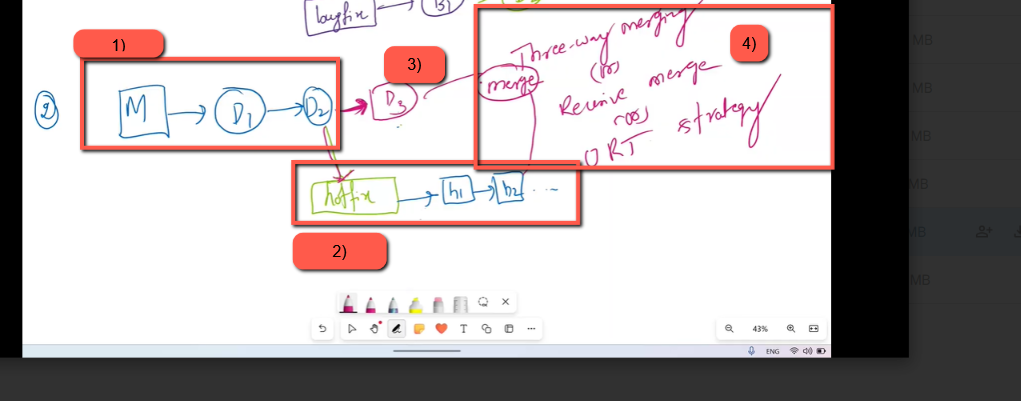 bugfix B1
1)
2
M D1 D2
3)
D3
4)
Three-way merging
(or)
merge
merge
(or)
ORT strategy
hotfix h1 h2 ...
2)
T
43%
ENG
MB
MB
MB
MB
MB
MB